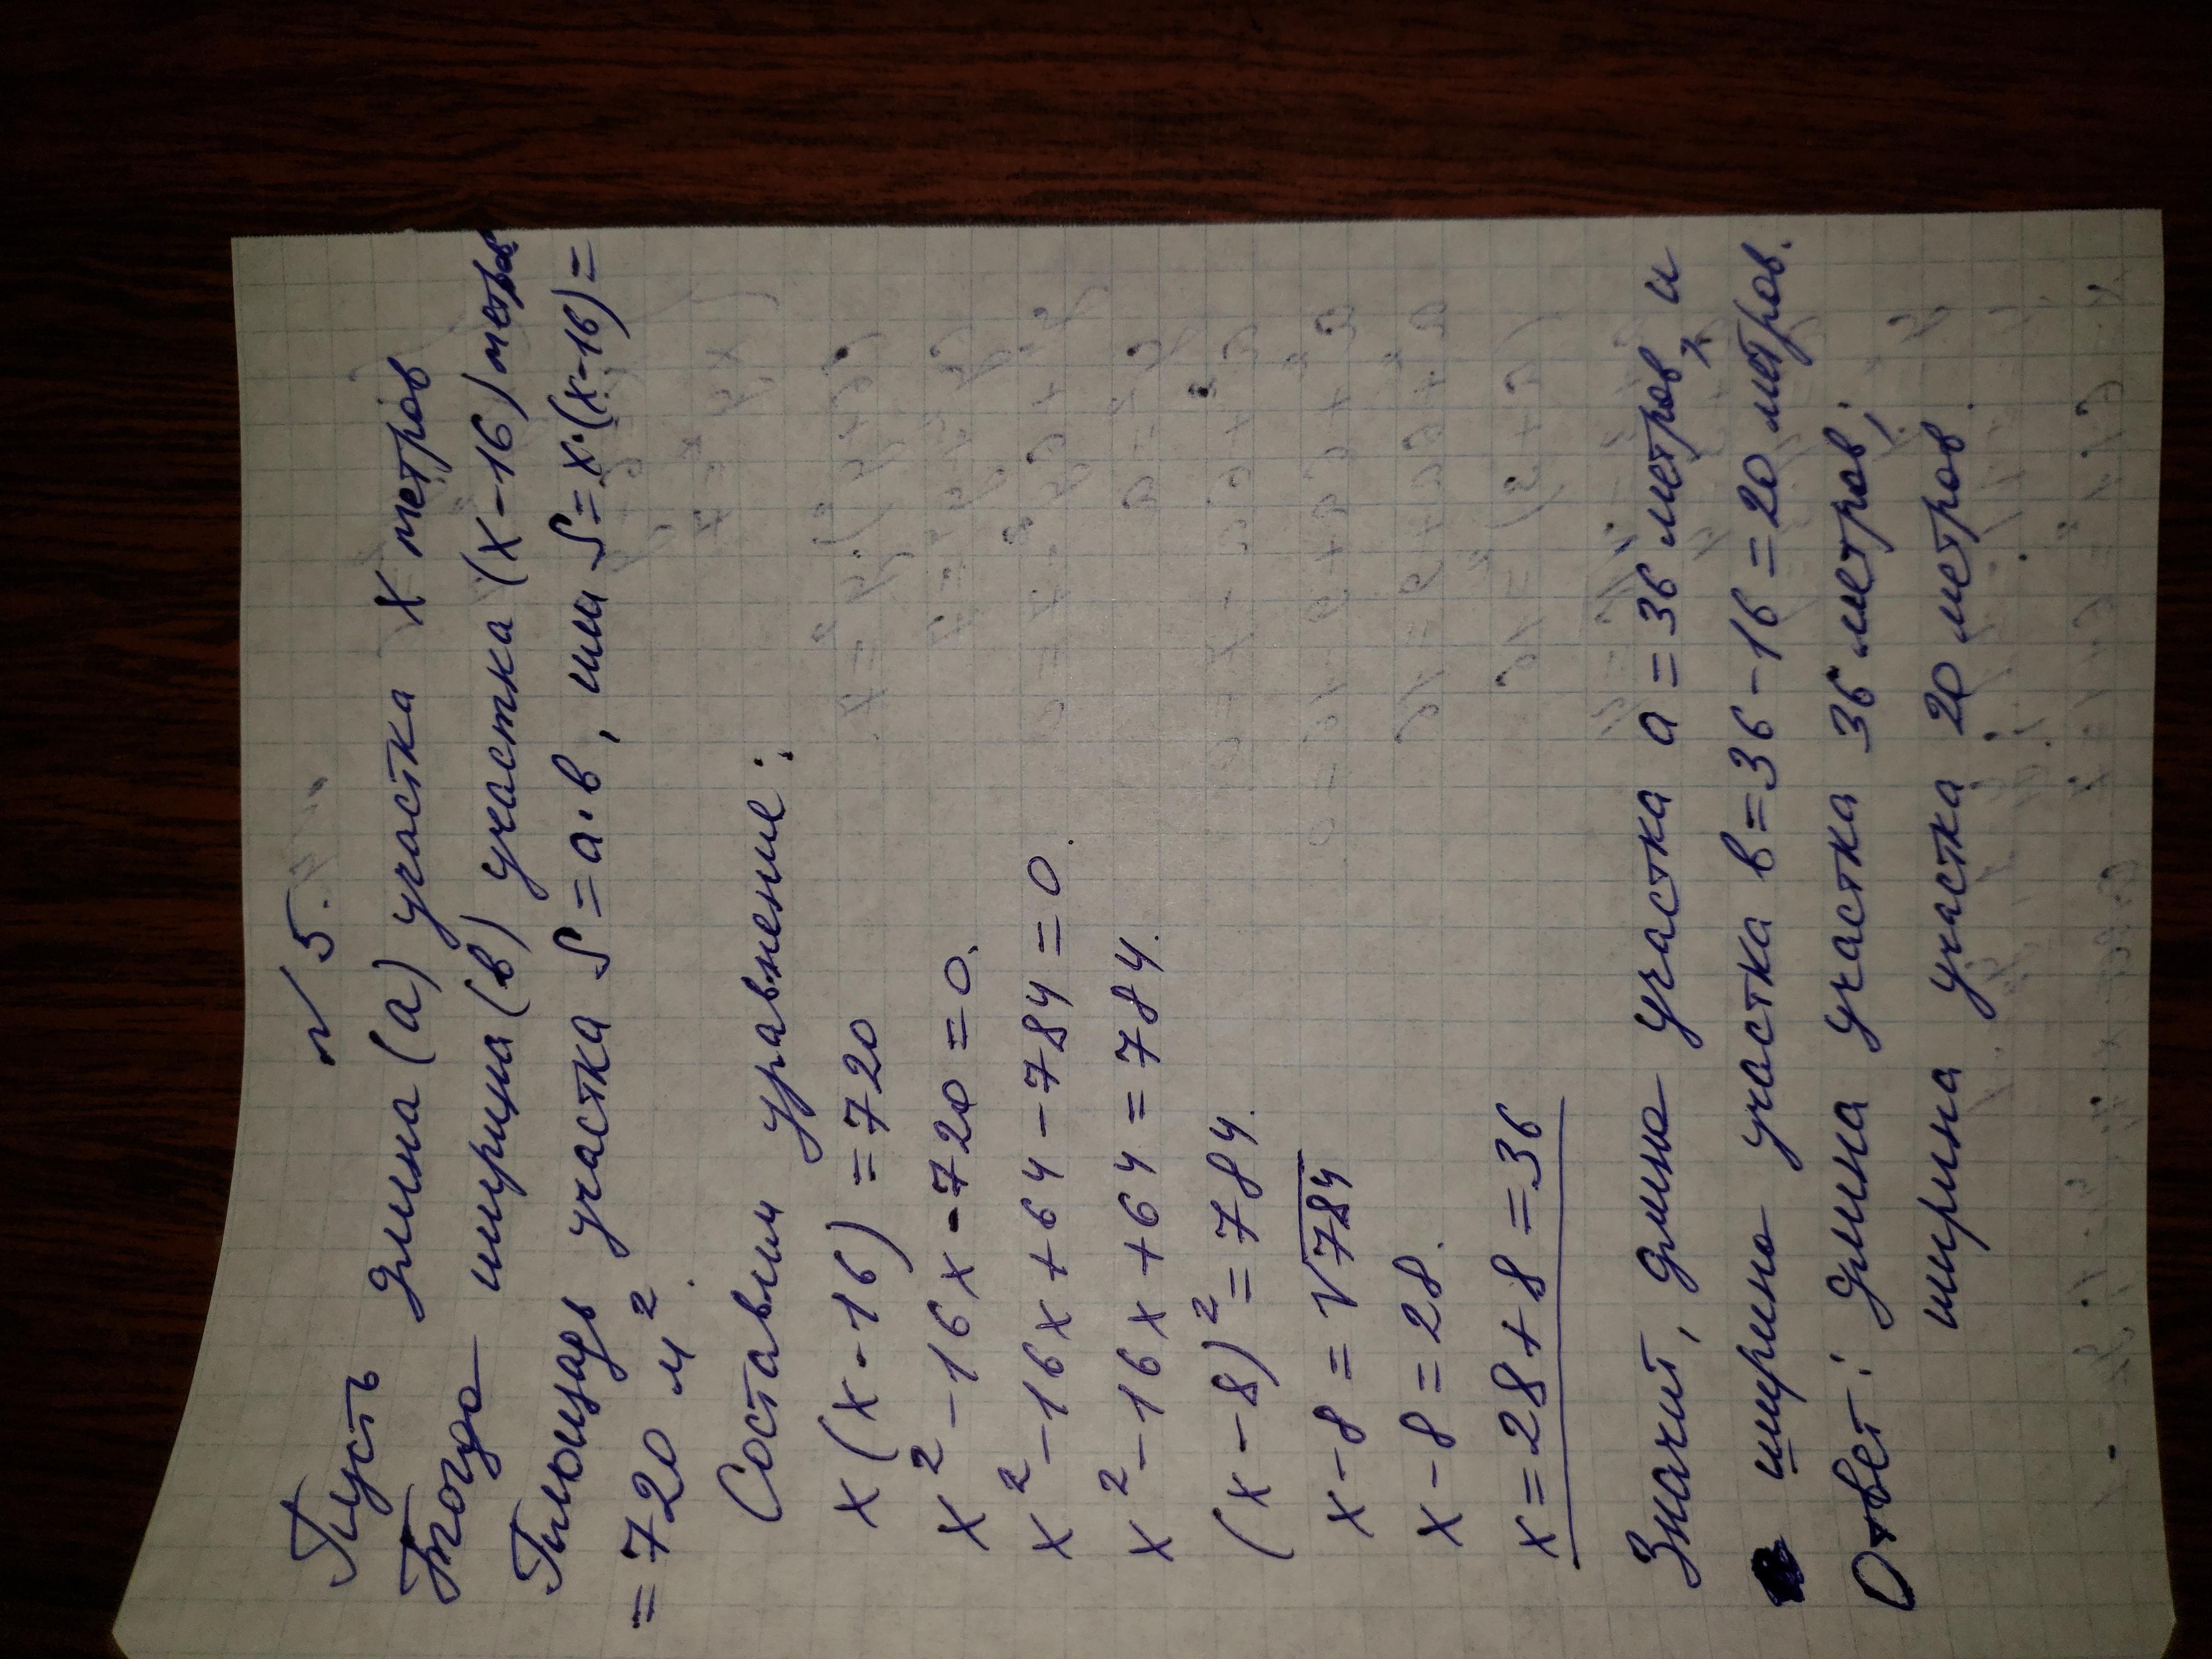 № 5.
Пусть длина (а) участка х метров
Тогда ширина (в) участка (х-16) метров
Площадь участка S = а·в, или S = х·(х-16) =
= 720 м².
Составим уравнение:
х(х-16) = 720
х² - 16х - 720 = 0.
х² - 16х + 64 - 784 = 0.
х² - 16х + 64 = 784.
(х - 8)² = 784.
х - 8 = √784
х - 8 = 28.
х = 28 + 8 = 36
Значит, длина участка а = 36 метров, и
ширина участка в = 36 - 16 = 20 метров.
Ответ: длина участка 36 метров;
ширина участка 20 метров.